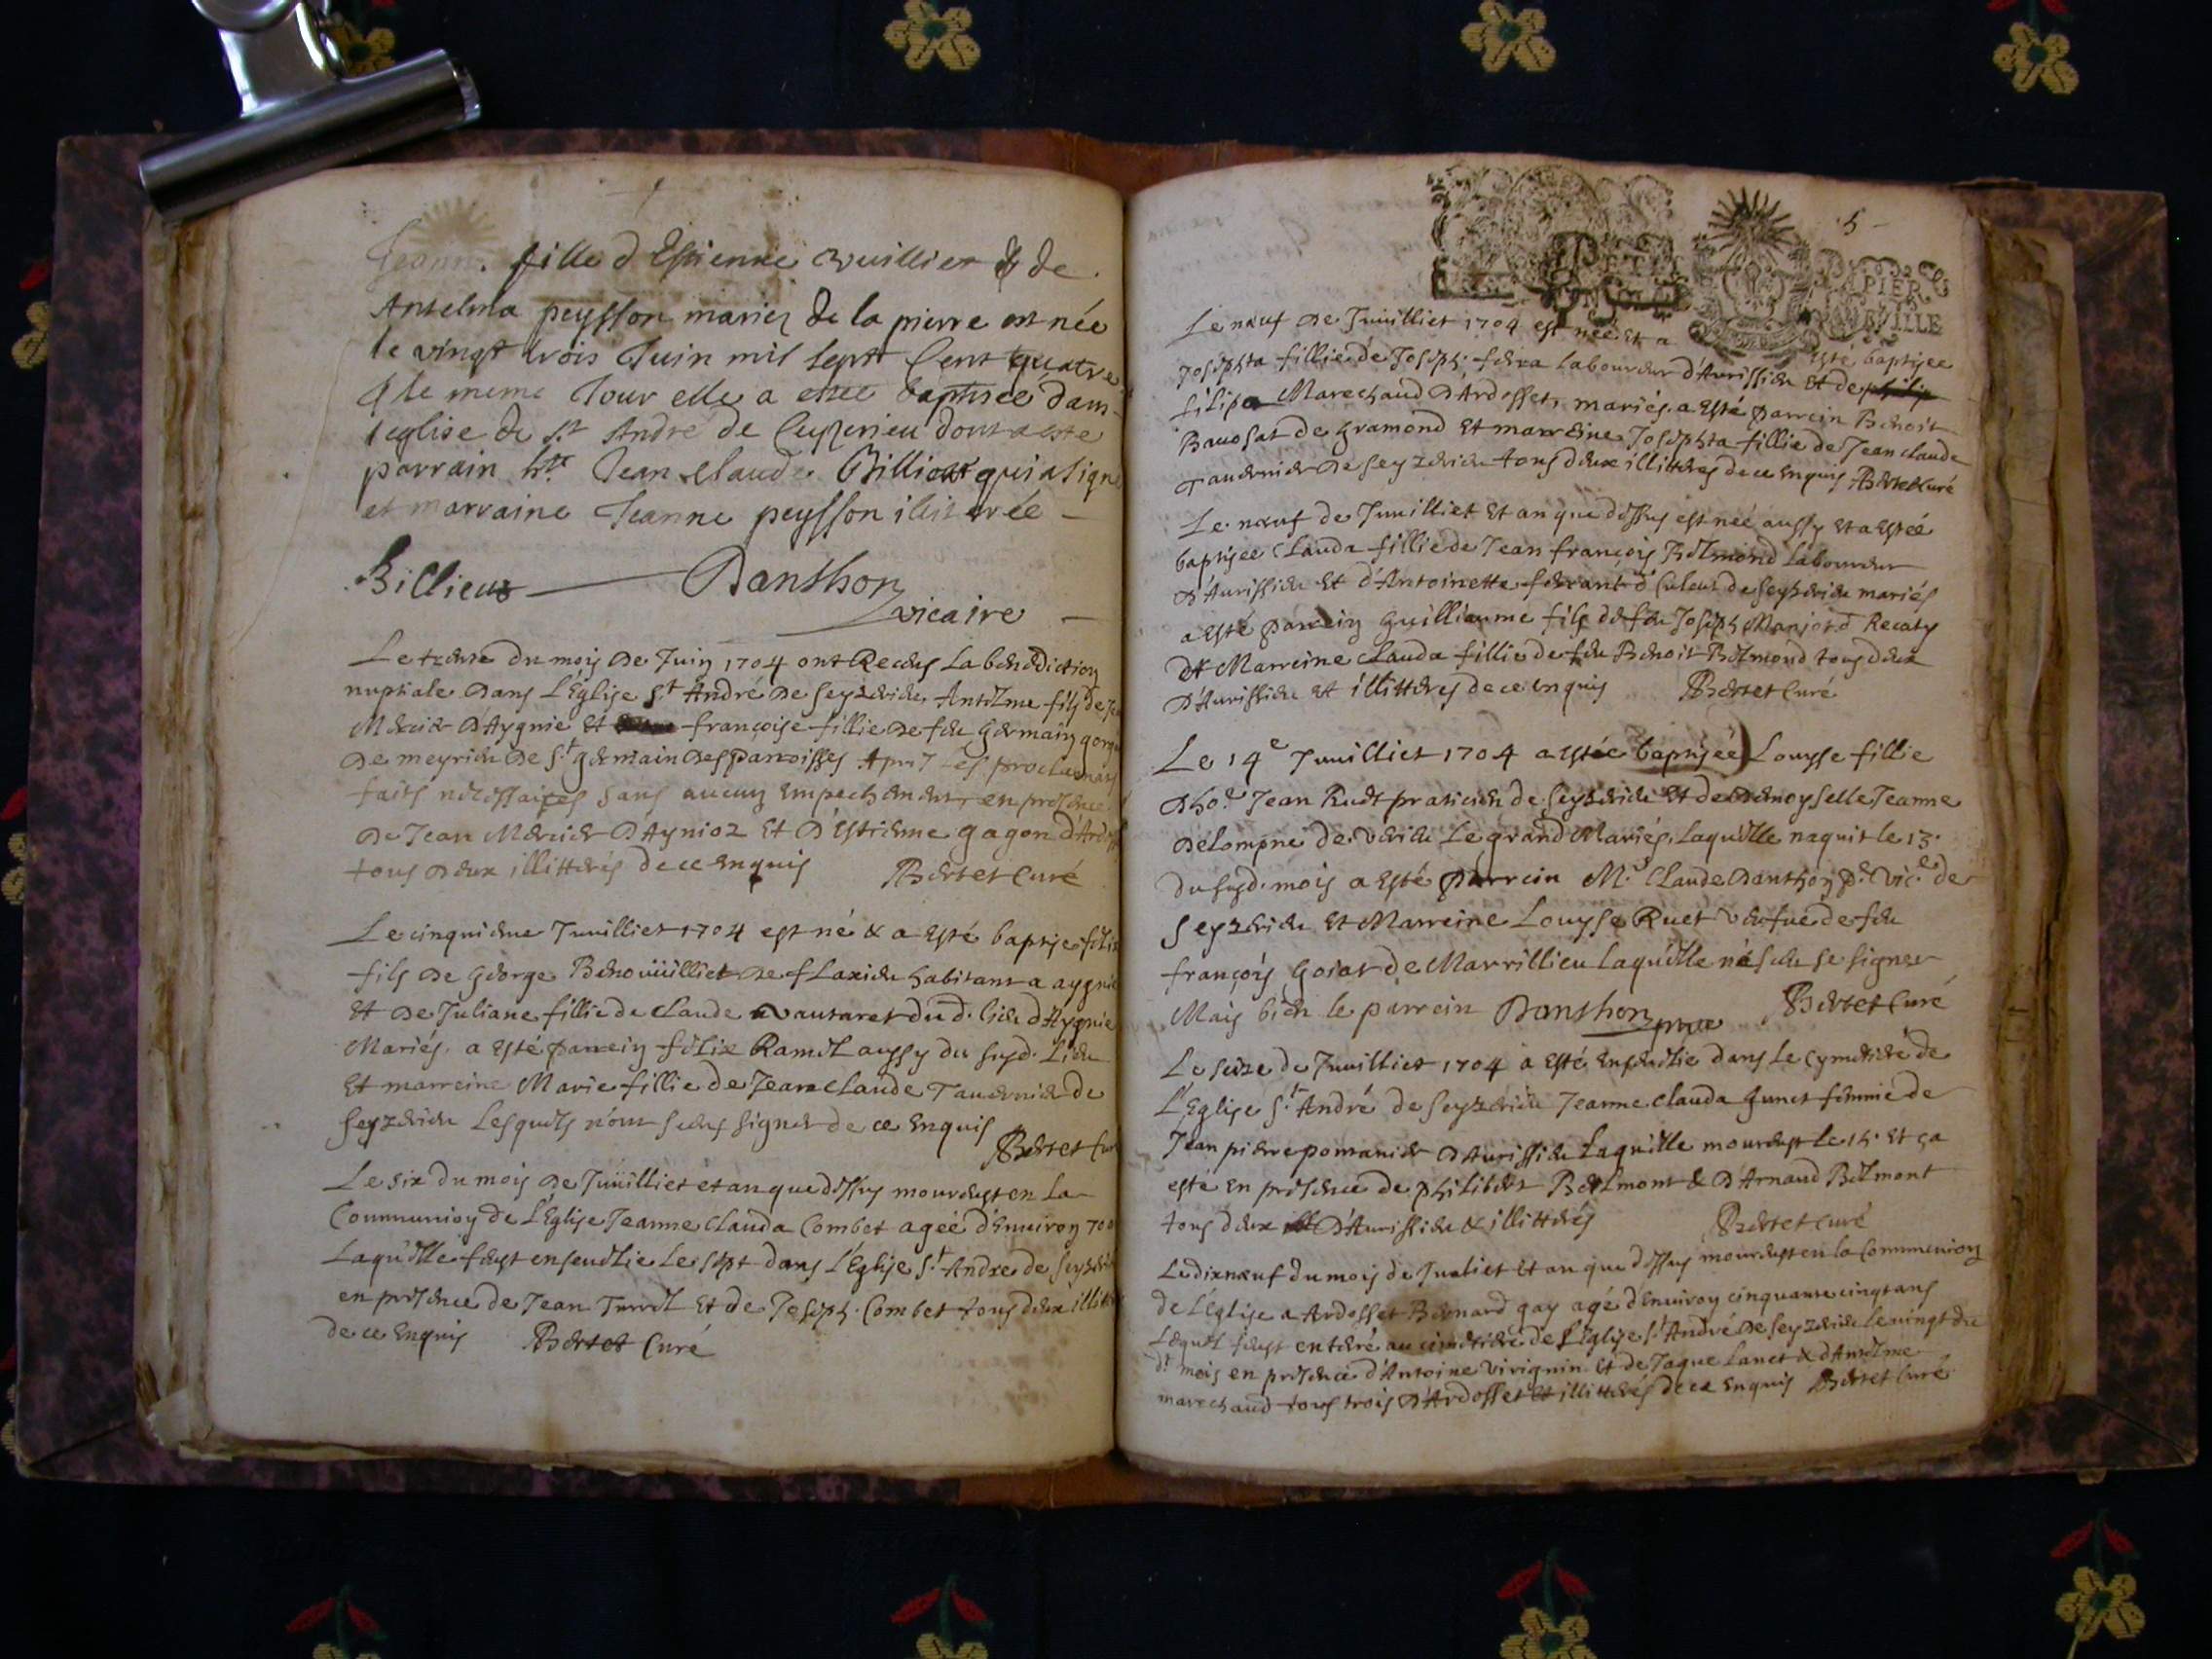 Jeanne fille d Estienne Vuillier & de
Antelma peysson mariez de la pierre est née
le vingt trois Juin mil sept Cent quatre
& le meme Jour elle a etée baptisée dans
leglise de St André de Ceyzerieu dont a este
parrain hte Jean Claude Billieux qui a signé
et marraine Jeanne peysson illiterée
Billieux Danthon
vicaire
Le du mois de Juin 1704 ont Receus la benediction
nuptiale dans L'Eglise St André de Seyzerieu Antelme fils de
Mercier d'Aygnie et françoise fillie de feu Germain
de meyrieu de St germain des parroisses Apres les
faits necessaires sans aucun Empechement en presence
de Jean Mercier d'Aynioz et d'Estienne gagon
tous deux illitterés de ce enquis PBertet Curé
Le cinquieme Juuilliet 1704 est né & a esté baptise
fils de George de flaxieu habitant a
et de Juliane fillie de Claude vautaret du d. lieu d'Aygnie
Mariés. a esté parrein felix Ramel aussy du susd. Lieu
Et marreine Marie fillie de Jean Claude Tavernier de
Seyzerieu Lesquels n'ont sceus signer de ce enquis
PBertet
Le six du mois de Juüilliet et an que dessus mourust en la
Communion de L'Eglise Jeanne Clauda Combet agée d'Enuiron 70
Laquelle fust enseuelie le sept dans L'Eglise St André de
en presence de Jean Turrel et de Joseph Combet tous deux
de ce enquis PBertet Curé
5
PETIT PAPIER
Le nœuf de Juuilliet 1704 est née et a esté baptisee
Josephta fillie de Joseph laboureur d'Aurissieu et de
filipa Marechaud d'Ardosset, mariés. a esté parrein Benoit
Bauosat de gramond et marreine Josephta fillie de Jean claude
Tauernier de Seyzerieu tous deux illitterés de ce enquis PBertet Curé
Le nœuf de Juuilliet et an que dessus est née aussy et a estée
baptisee Clauda fillie de Jean françois Belmond laboureur
d'Aurissieu et d'Antoinette de Seyzerieu mariés
a esté parrein Guilliaume fils de feu Joseph
et Marreine Clauda fillie de feu Benoit Belmond tous deux
d'Aurissieu et illitterés de ce enquis PBertet Curé
Le 14e Juuilliet 1704 a estée baptisée Louyse fillie
Jean Ruet praticien de Seyzerieu et de Demoyselle Jeanne
Delompne de Virieu Le grand Mariés. Laquelle naquit le 13.
du susd. mois a esté parrein Mr Claude Danthon Vic. de
Seyzerieu et Marreine Louyse Ruet veufue de feu
françois Gojat de Marrillieu Laquelle n'a sceu se signer
Mais bien le parrein Danthon PBertet Curé
Le seize de Juuilliet 1704 a esté enseuelie dans le cymetiere de
L'Eglise St André de Seyzerieu Jeanne Clauda femme de
Jean pierre pomanier d'Aurissieu Laquelle mourust le 15. et ça
esté en presence de philibert Belmont & d'Arnaud Belmont
tous deux d'Aurissieu & illitterés PBertet curé
Le dixnœuf du mois de Jualiet et an que dessus mourust en la Communion
de L'Eglise a Ardosset Bernard gay agé d'Enuiron cinquante cinq ans
Lequel fust enterré au cimetiere de L'Eglise St André de Seyzerieu le vingt du
dt mois en presence d'Antoine virignin et de Jaque Lanet & d'Antelme
marechaud tous trois d'Ardosset et illitterés de ce enquis PBertet Curé